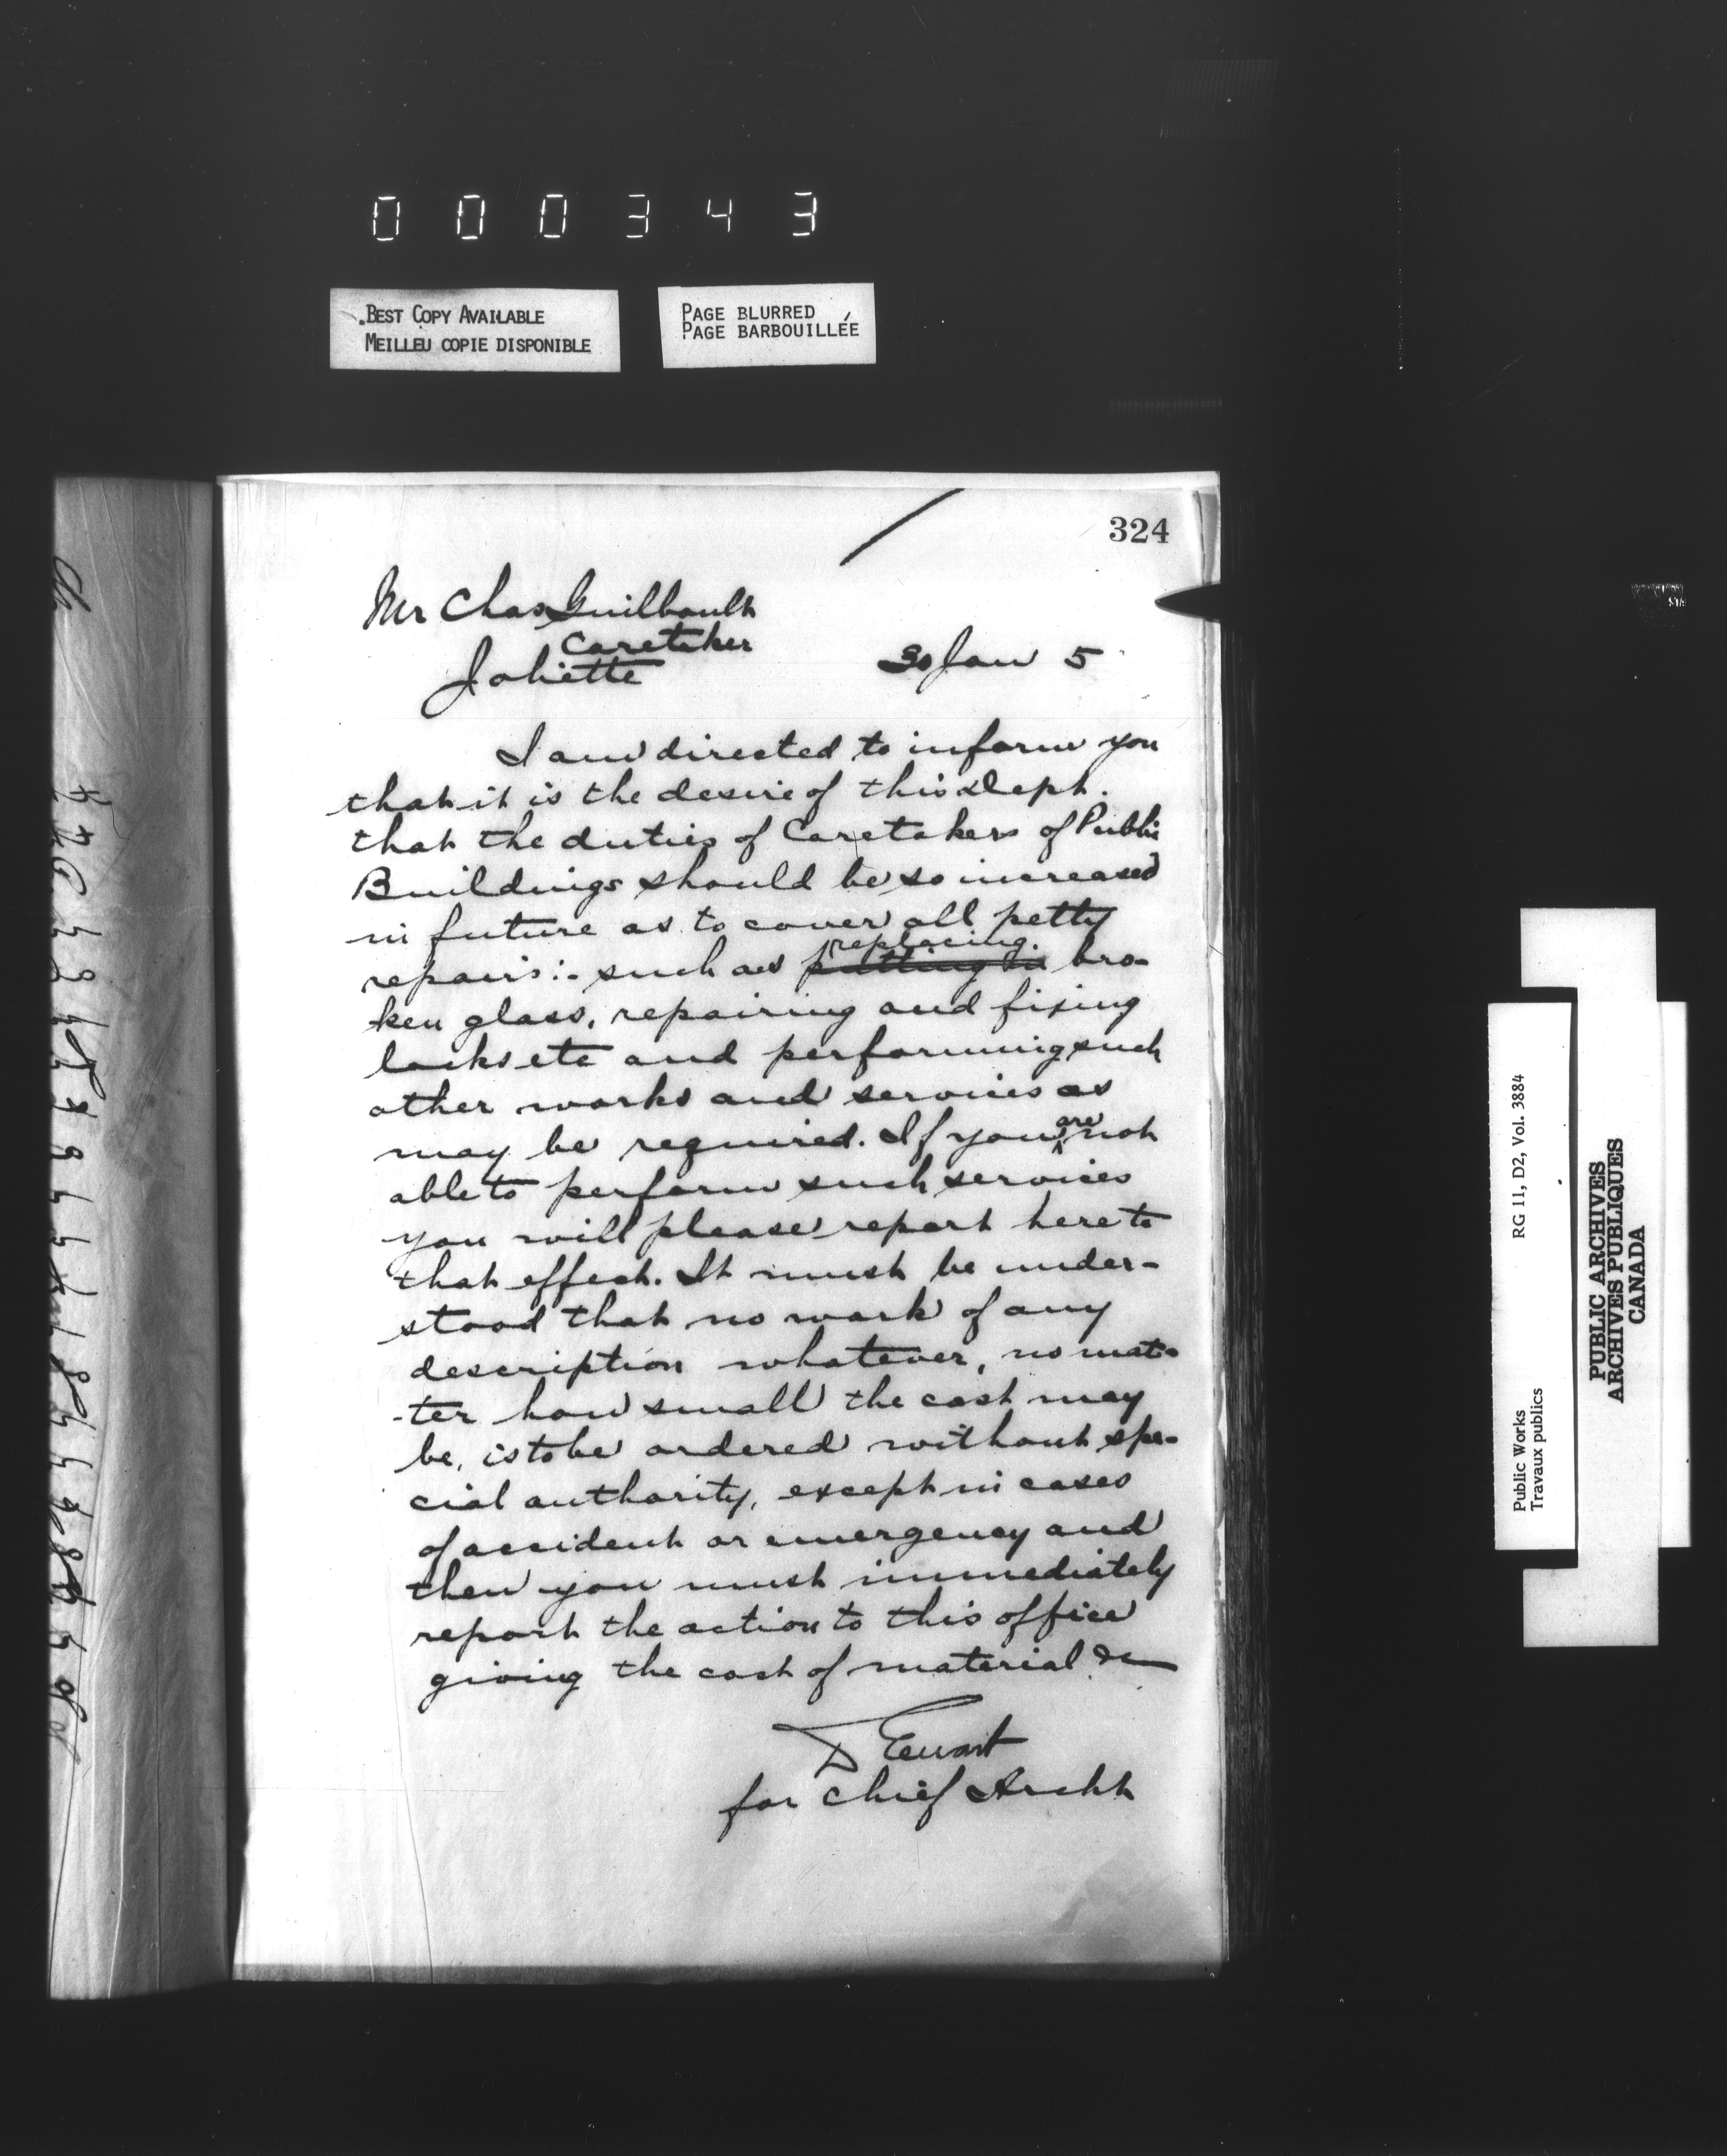 000343
BEST COPY AVAILABLE
MEILLEU COPIE DISPONIBLE
PAGE BLURRED
PAGE BARBOUILLÉE
324
Mr Chas Guilbault
Caretaker
Joliette
30 Jan 5
I am directed to inform you
that it is the desire of this Dept.
that the duties of Caretakers of Public
Buildings should be so increased
in future as to cover all petty
replacing
repairs:- such as putting in bro-
ken glass, repairing and fixing
locks etc and performing such
other works and services as
may be required. If you are not
able to perform such services
you will please report here to
that effect. It must be under-
stood that no work of any
description whatever, no mat-
-ter how small the cost may
be, is to be ordered without spe-
cial authority, except in cases
of accident or emergency and
then you must immediately
report the action to this office
giving the cost of material &c
D Ewart
for Chief Archt
Public Works
Travaux publics
RG 11, D2, Vol. 3884
PUBLIC ARCHIVES
ARCHIVES PUBLIQUES
CANADA